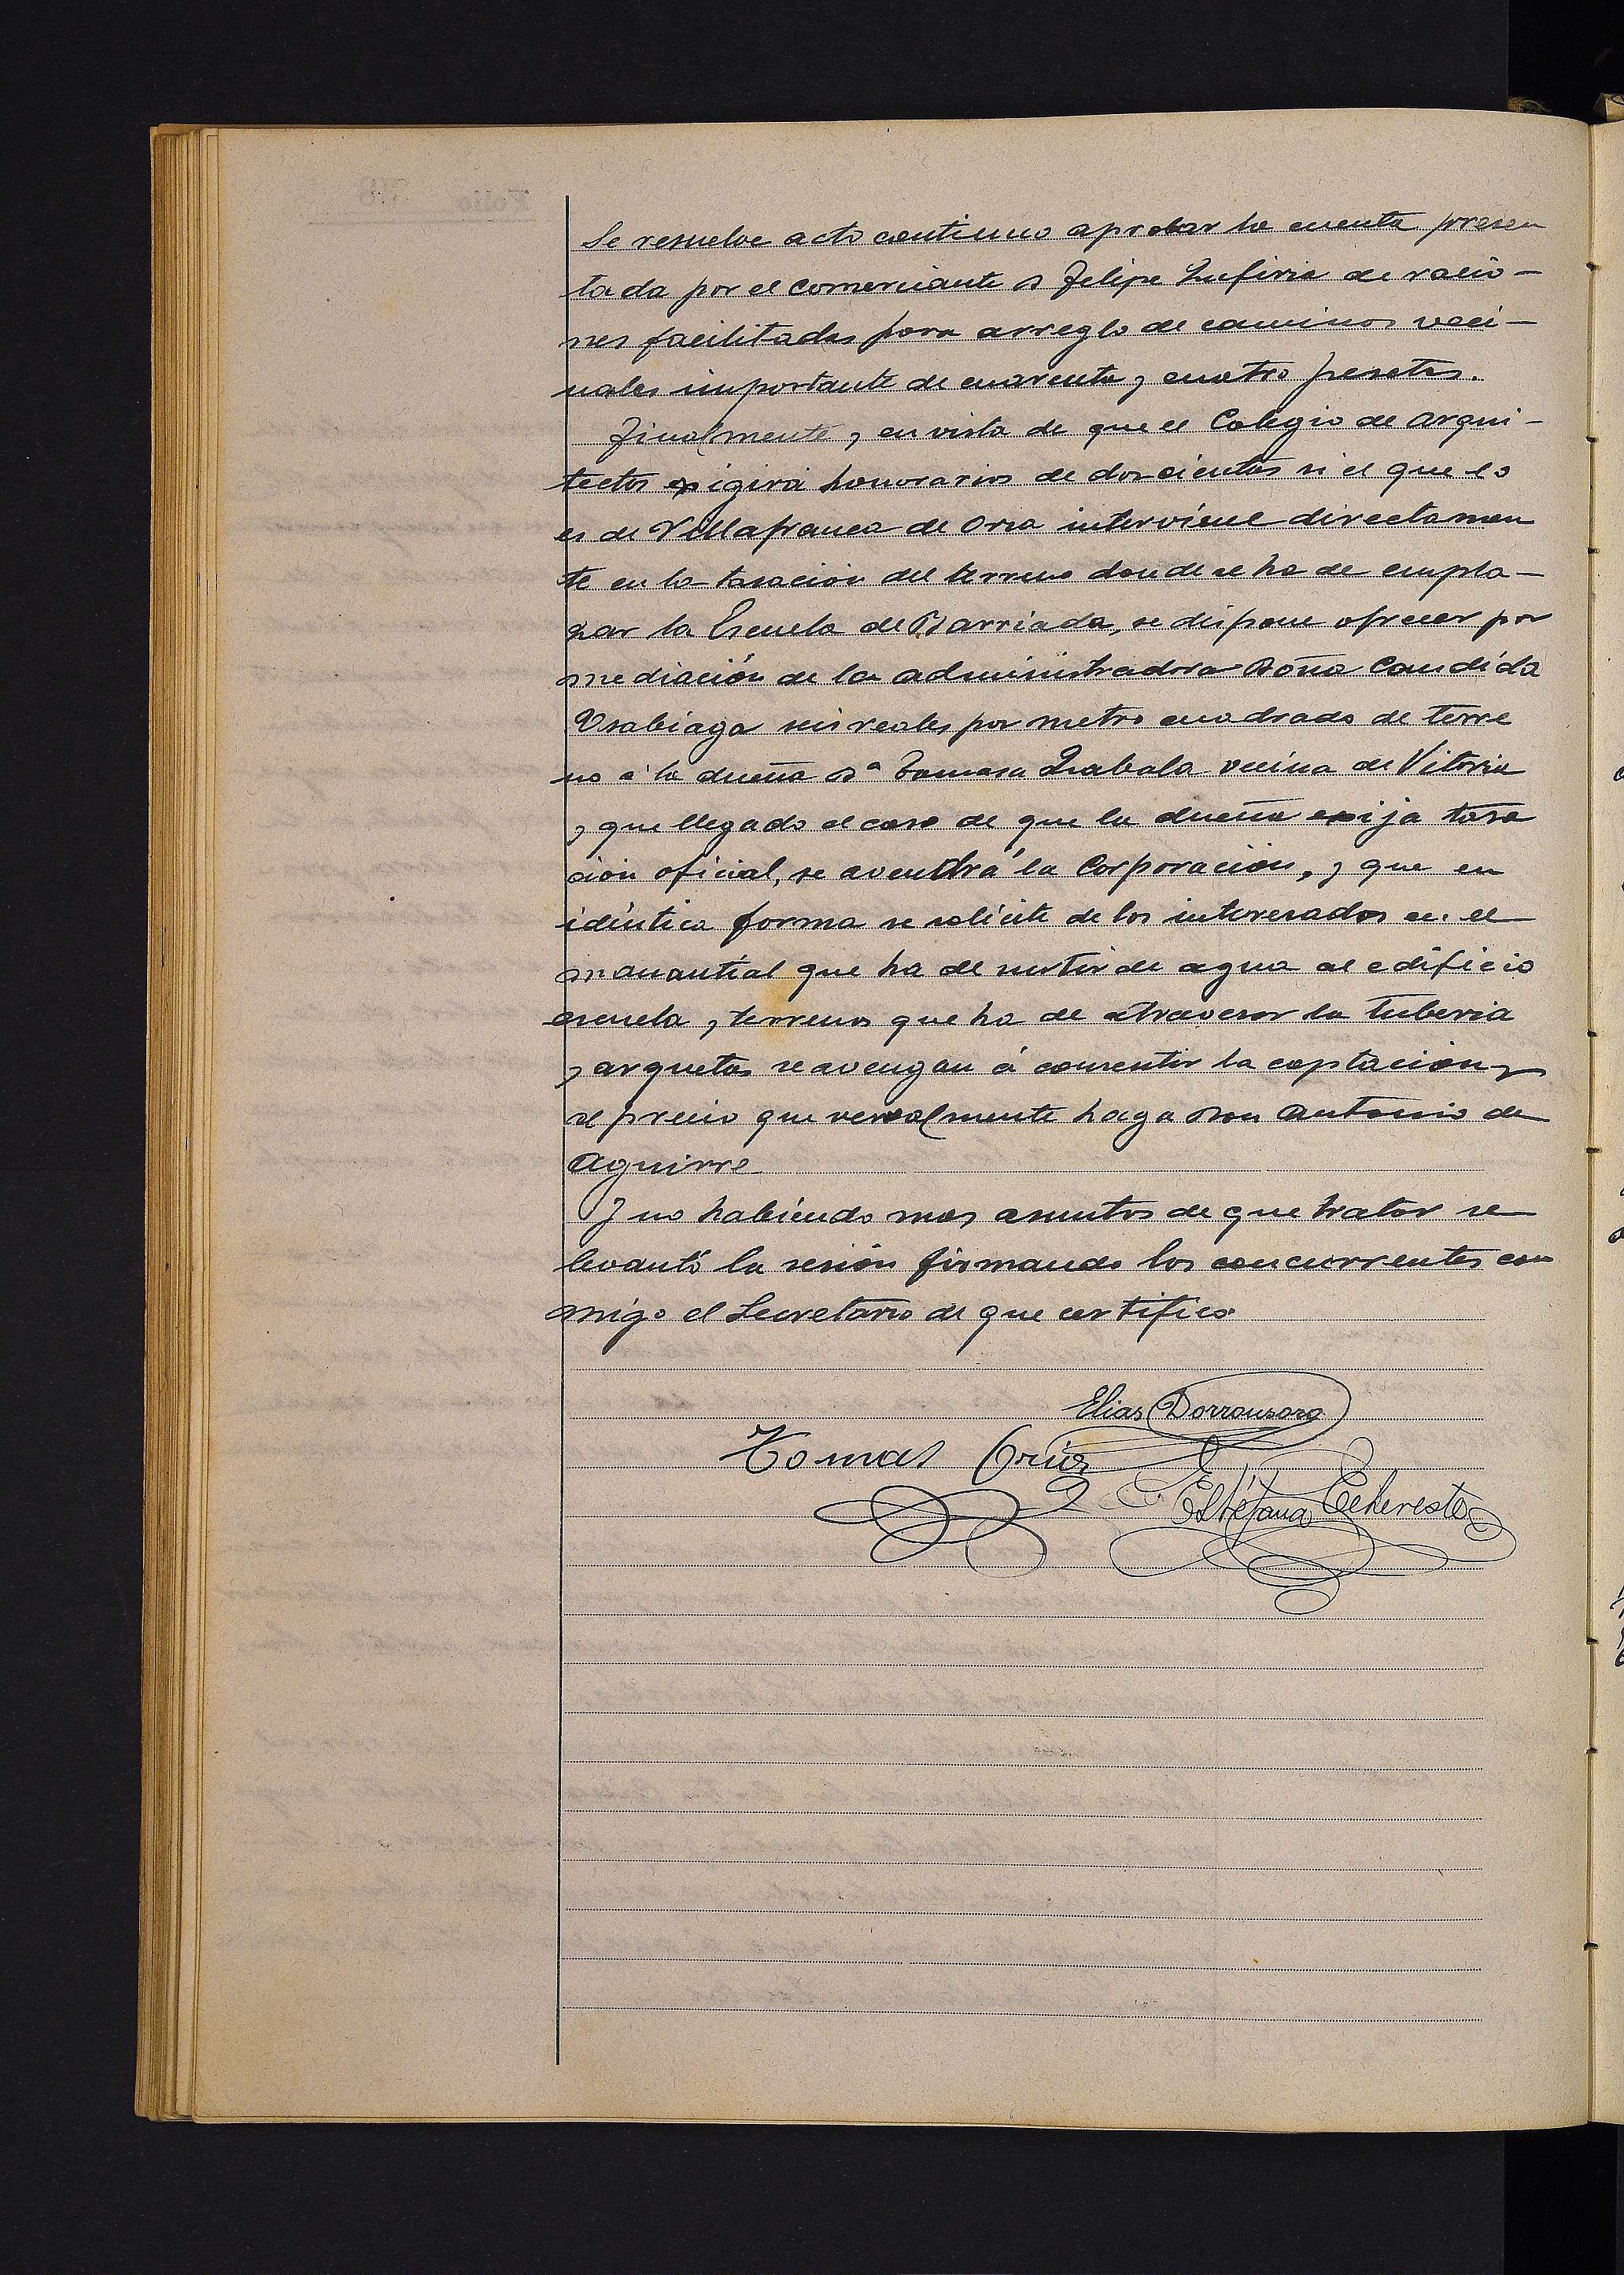 Se resuelve acto continuo aprobar la cuenta presen
tada por el comerciante D Felipe Zufiria de racio-
nes facilitadas para arreglo de caminos veci-
nales importante de cuarenta y cuatro pesetas.
Finalmente y en vista de que el Colegio de arqui-
tectos exigirá honorarios de doscientas si el que lo
es de Villafranca de Oria interviene directamen
te en la tasación del terreno donde se ha de empla-
zar la Escuela de Barriada, se dispone ofrecer por
mediación de la administradora Doña Candida
Usabiaga seis reales por metro cuadrado de terre
no á la dueña Dª Tomasa Zabala vecina de Vitoria
y que llegado el caso de que la dueña exija tasa
ción oficial, se avendrá la Corporación, y que en
idéntica forma se solicite de los interesados en el
manantial que ha de surtir de agua al edificio
escuela y terrenos que ha de atravesar la tuberia
y arquetas se avengan á consentir la captación y
al precio que verbalmente haga Don Antonio de
Aguirre
Y no habiendo mas asuntos de que tratar se
levantó la sesión firmando los concurrentes con
migo el Secretario de que certifico
Elias Dorronsoro
Tomas
Estéfana Echeveste